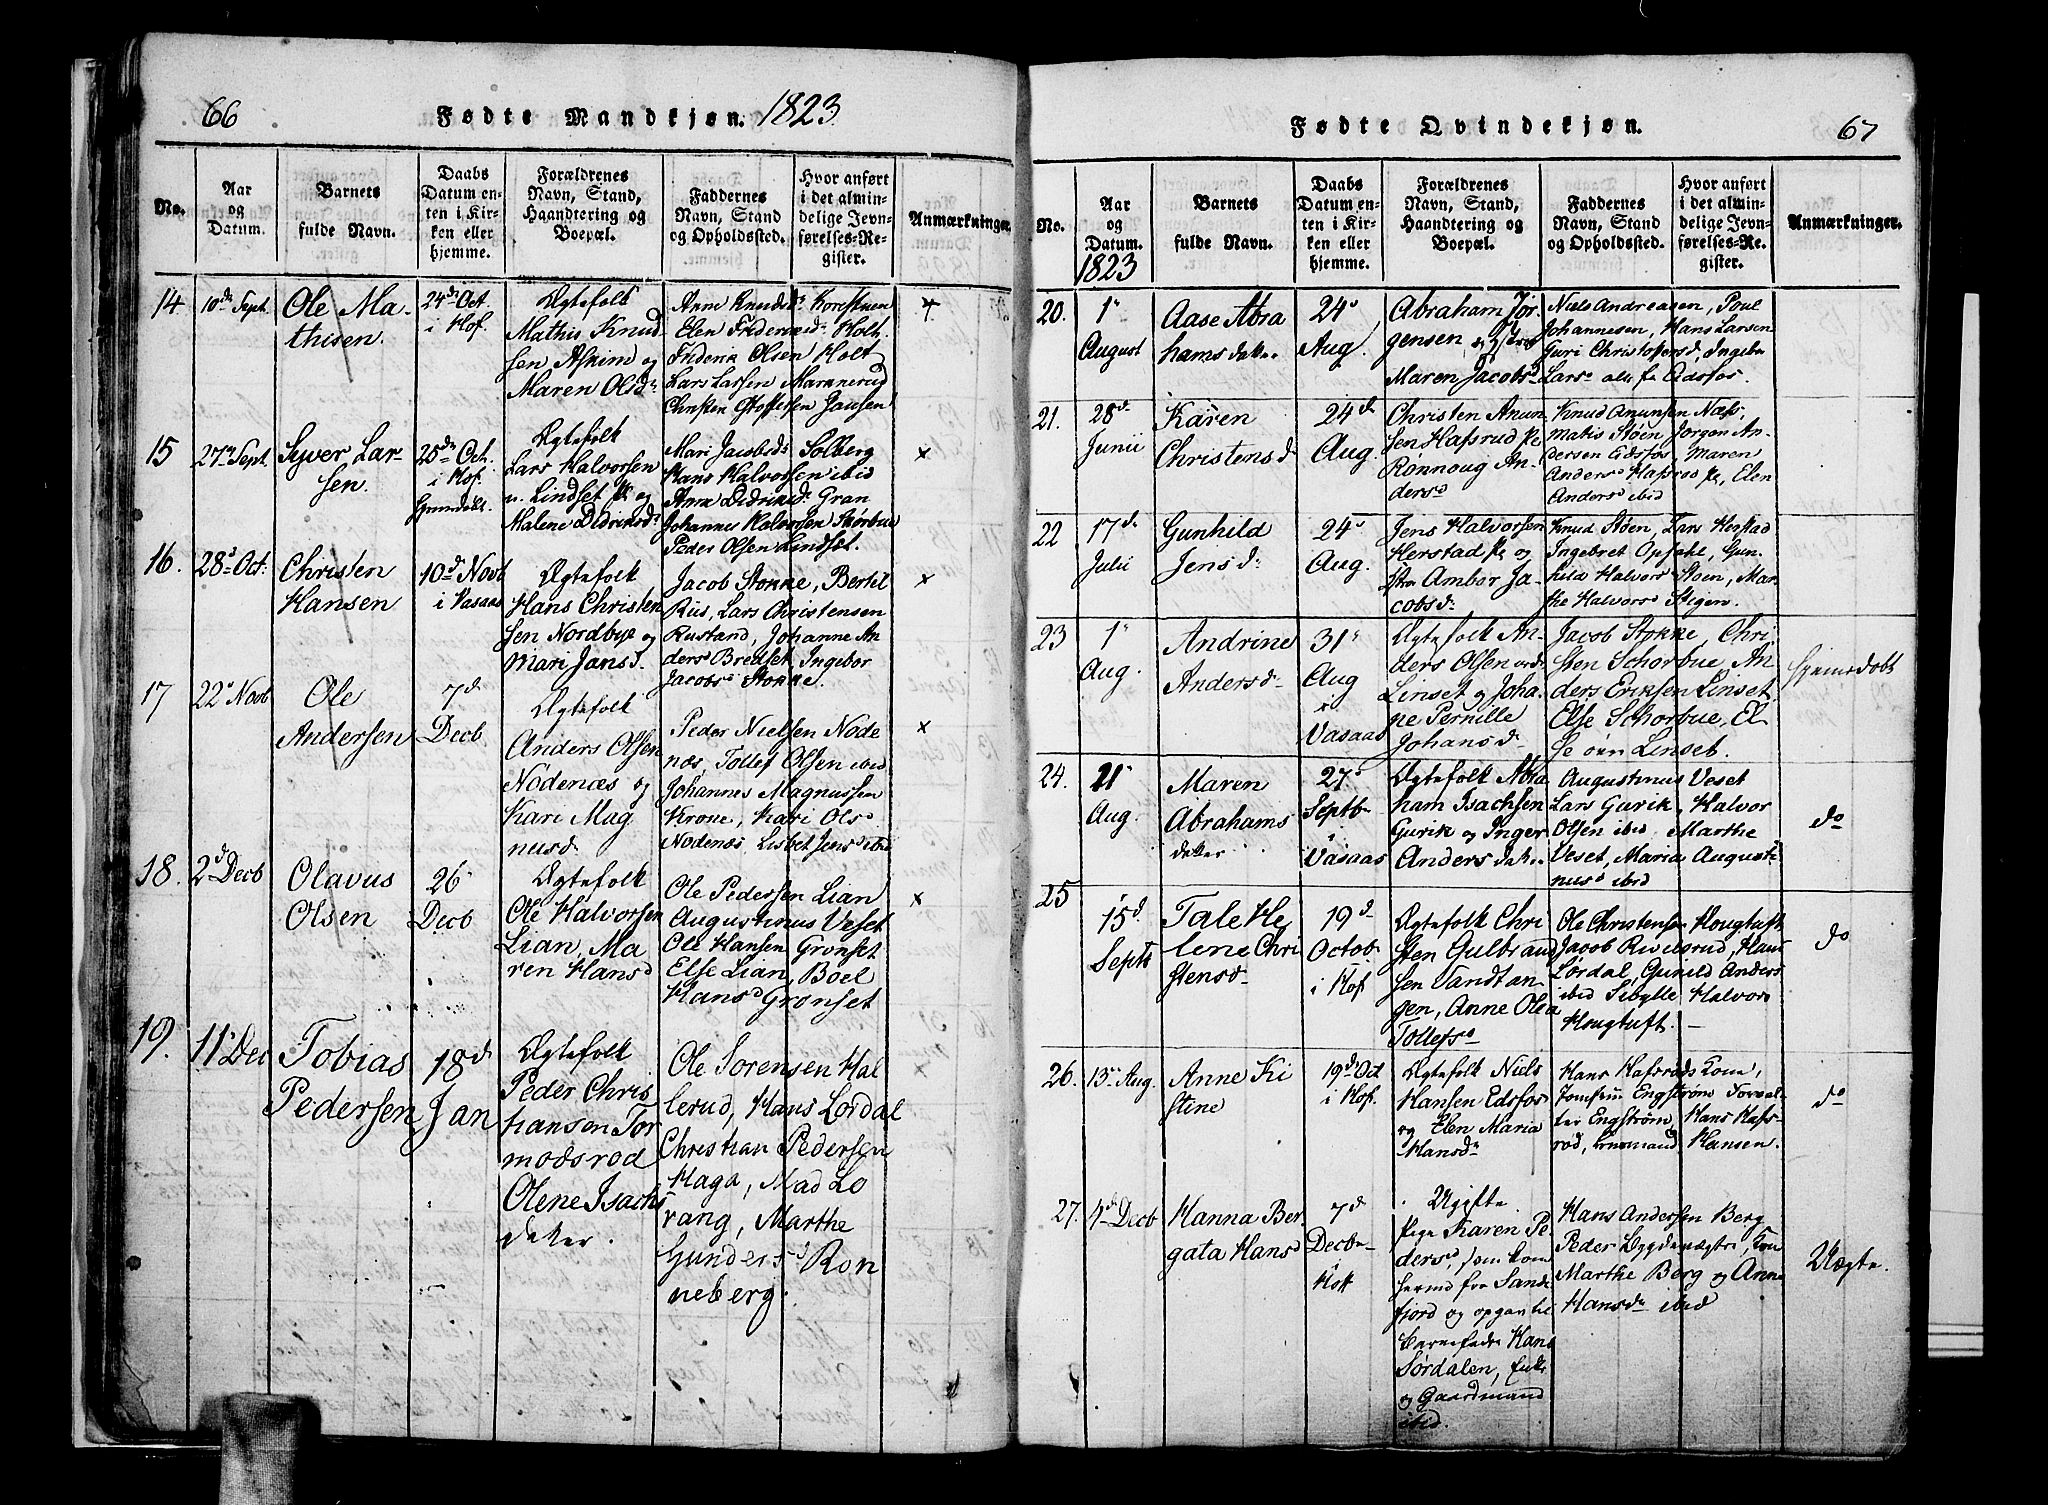 66
Fødte Mandkjøn. 1823
No.
Aar og Datum.
Barnets fulde Navn.
Daabs Datum enten i Kirken eller hjemme.
Forældrenes Navn, Stand, Haandtering og Boepæl.
Faddernes Navn, Stand og Opholdssted.
Hvor anført i det almindelige Jevnførelses-Register.
Anmærkninger.
14
10de Sept.
Ole Ma-
thisen.
24de Oct.
i Hof.
Ægtefolk
Mathis Knud
sen Askim og
Maren Olsdr
Anne Knudsdr
Elen Friderichsdr Holt
Friderik Olsen Holt
Lars Larsen
Christen
×
15
27de Sept.
Syver Lar-
sen.
25de Oct.
i Hof.
Ægtefolk
Lars Halvorsen
Lindset Pl og
Malene Didriksdr
Mari Jacobsdr Solberg
Hans Halvorsen ibid
Anna Didriksdr Gran
Johannes Halvorsen Skorbue
Peder Olsen Lindset.
×
16.
28d Oct:
Christen
Hansen
10d Novb
i Vasaas
Ægtefolk
Hans Christen
sen Nordbye og
Mari Jansd.
Jacob Stokke, Bertel
Rus, Lars Christensen
Rustand, Johanne An
dersd Bredset, Ingebor
Jacobsd Stokke.
×
17
22d Novb
Ole
Andersen
7d
Decb
Ægtefolk
Anders Olsen
Nødenæs og
Kari Mag
nusd.
Peder Nielsen Node
næs, Tollef Olsen ibid
Johannes Magnussen
Krone, Kari Olsd
Nodenæs, Lisbet Jensd ibid
×
18.
2d Decb
Olavus
Olsen
26
Decb
Ægtefolk
Ole Halvorsen
Lian, Ma
ren Hansd
Ole Pedersen Lian
Augustinus Veset
Ole Hansen Gronset
Else Lian, Boel
Hansd Gronset
×
19.
11d Dec
Tobias
Pedersen
18d
Jan
Ægtefolk
Peder Chris
hansen Tor
modsrod
Olene Isachs
datter.
Ole Sorensen Hal
lerud, Hans Lordal
Christian Pedersen
Haga, Mad Lo
rang, Marthe
Gundersd Ron
neberg.
×
Fødte Qvindekjøn.
67
No.
Aar og Datum.
1823
Barnets fulde Navn.
Daabs Datum enten i Kirken eller hjemme.
Forældrenes Navn, Stand, Haandtering og Boepæl.
Faddernes Navn, Stand og Opholdssted.
Hvor anført i det almindelige Jevnførelses-Register.
Anmærkninger.
20.
1
August
Aase Abra
hams datter
24d
Aug.
Abraham Jør
gensen
Maren Jacobsd
Niels Andreasen, Poul
Johannesen, Hans Larsen
Guri Christophersd, Ingebor
Larsd alle fra Edsfos.
21.
28d
Junii
Karen
Christensd
24d
Aug.
Christen Anun
sen Hafsrud Pl
Rønnoug An-
dersd
Knud Anunsen Næss,
Matis Støen, Jørgen An-
dersen Edsfos, Maren
Andersd Hafsrod Pl, Elen
Andersd ibid
22
17d
Julii
Gunhild
Jensd.
24d
Aug.
Jens Halvorsen
Herstad Pl og
Ambor Ja
cobsd.
Knud Støen, Lars Herstad
Ingebret Opsahl, Gun
hild Halvorsd Støen, Mar
the Halvorsd Stigen.
23
1
Aug.
Andrine
Andersd.
31
Aug
i
Vasaas
Ægtefolk An-
ders Olsen
Linset og Joha
ne Pernille
Johansd.
Jacob Stokke, Chri
sten Schorbue, An
ders Eriksen Linset,
Else Schorbue, El
se Linset.
hjemedøbt
24.
21
Aug.
Maren
Abrahams
datter
27d
Septb
i
Vasaas
Ægtefolk Abra
ham Isachsen
Gurik og Inger
Anders datter
Augustinus Veset
Lars Gurik, Halvor
Olsen ibid, Marthe
Veset, Maria Augusti
nusd ibid
do
25
15d.
Septb
Tale He
lene Chri
stensd.
19d
Octob
i Hof
Ægtefolk Chri
sten Gulbrand
sen Tandtan
gen, Anne Olea
Tollefsd
Ole Christensen Hougtuft
Jacob Ruelsrud, Hans
Lørdal, Gunild Anders
ibid Sibylle Halvors
Hougtuft.
do
26.
13de Aug.
Anne Ki
stine
19de Oct
i Hof.
Ægtefolk Niels
Hansen Edsfos
og Elen Maria
Hansdr
Hans Hafsrods Kone,
Jomfru Engstrøm, Forval-
ter Engstrøm, Hans Hafs-
rod, Hansen.
do
27.
4de Decb
Hanna Ber
gata Hansd
7d
Decb
Hoff
Ugifte
Pige Karen Pe
dersd, som kom
herind fra Sande
fjord og opgav til
barnefader Hans
Sørdalen, Enke
og Gaardmand
ibid.
Hans Andersen Berg
Peder
Marthe Berg og Anne
Hansdr ibid
Uægte.